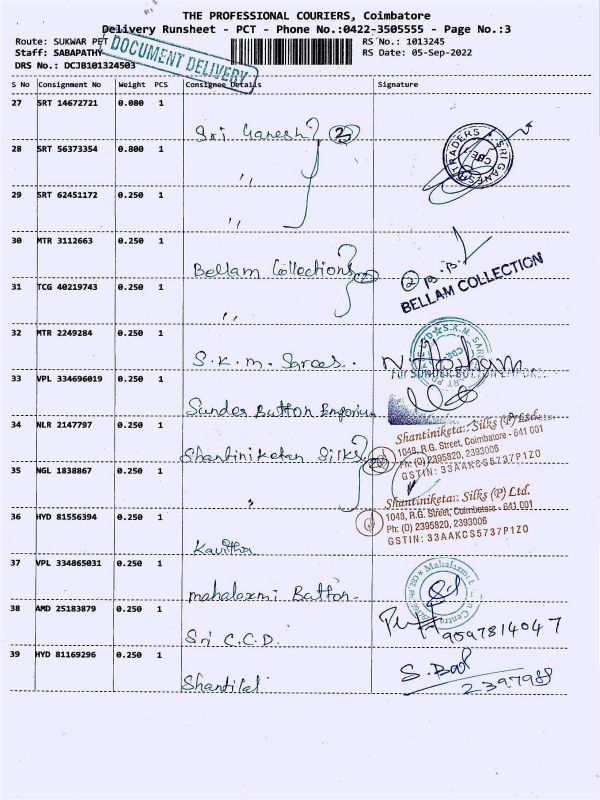 THE PROFESSIONAL COURIERS, Coimbatore
Delivery Runsheet - PCT - Phone No.:0422-3505555 - Page No.:3
Route: SUKWAR PET
RS No.: 1013245
Staff: SABAPATHY
RS Date: 05-Sep-2022
DRS No.: DCJB101324503
DOCUMENT DELIVERY
S No Consignment No Weight PCS Consignee Details Signature
27 SRT 14672721 0.080 1
Sri Ganesh 3
28 SRT 56373354 0.800 1
,,
TRADERS SRI GANESH CBE-1
29 SRT 62451172 0.250 1
,,
30 MTR 3112663 0.250 1
Bellam Collections 2
2 B.B.
BELLAM COLLECTION
31 TCG 40219743 0.250 1
,,
32 MTR 2249284 0.250 1
S.K.M. Sarees.
S.K.M. SAR
33 VPL 334696019 0.250 1
For SUNDER BUTTON EMPORIUM
Sunder Button Emporium
34 NLR 2147797 0.250 1
Shantiniketan Silks 2
Shantiniketan Silks (P) Ltd.
1048, R.G. Street, Coimbatore - 641 001
Ph: (O) 2395820, 2393006
GSTIN: 33AAKCS5737P1Z0
35 NGL 1838867 0.250 1
,,
Shantiniketan Silks (P) Ltd.
1048, R.G. Street, Coimbatore - 641 001
Ph: (O) 2395820, 2393006
GSTIN: 33AAKCS5737P1Z0
36 HYD 81556394 0.250 1
Kavitha
37 VPL 334865031 0.250 1
Mahalaxmi Button
Mahalaxmi
38 AMD 25183879 0.250 1
Sri C.C.D.
9597814047
39 HYD 81169296 0.250 1
Shantilal
2397989